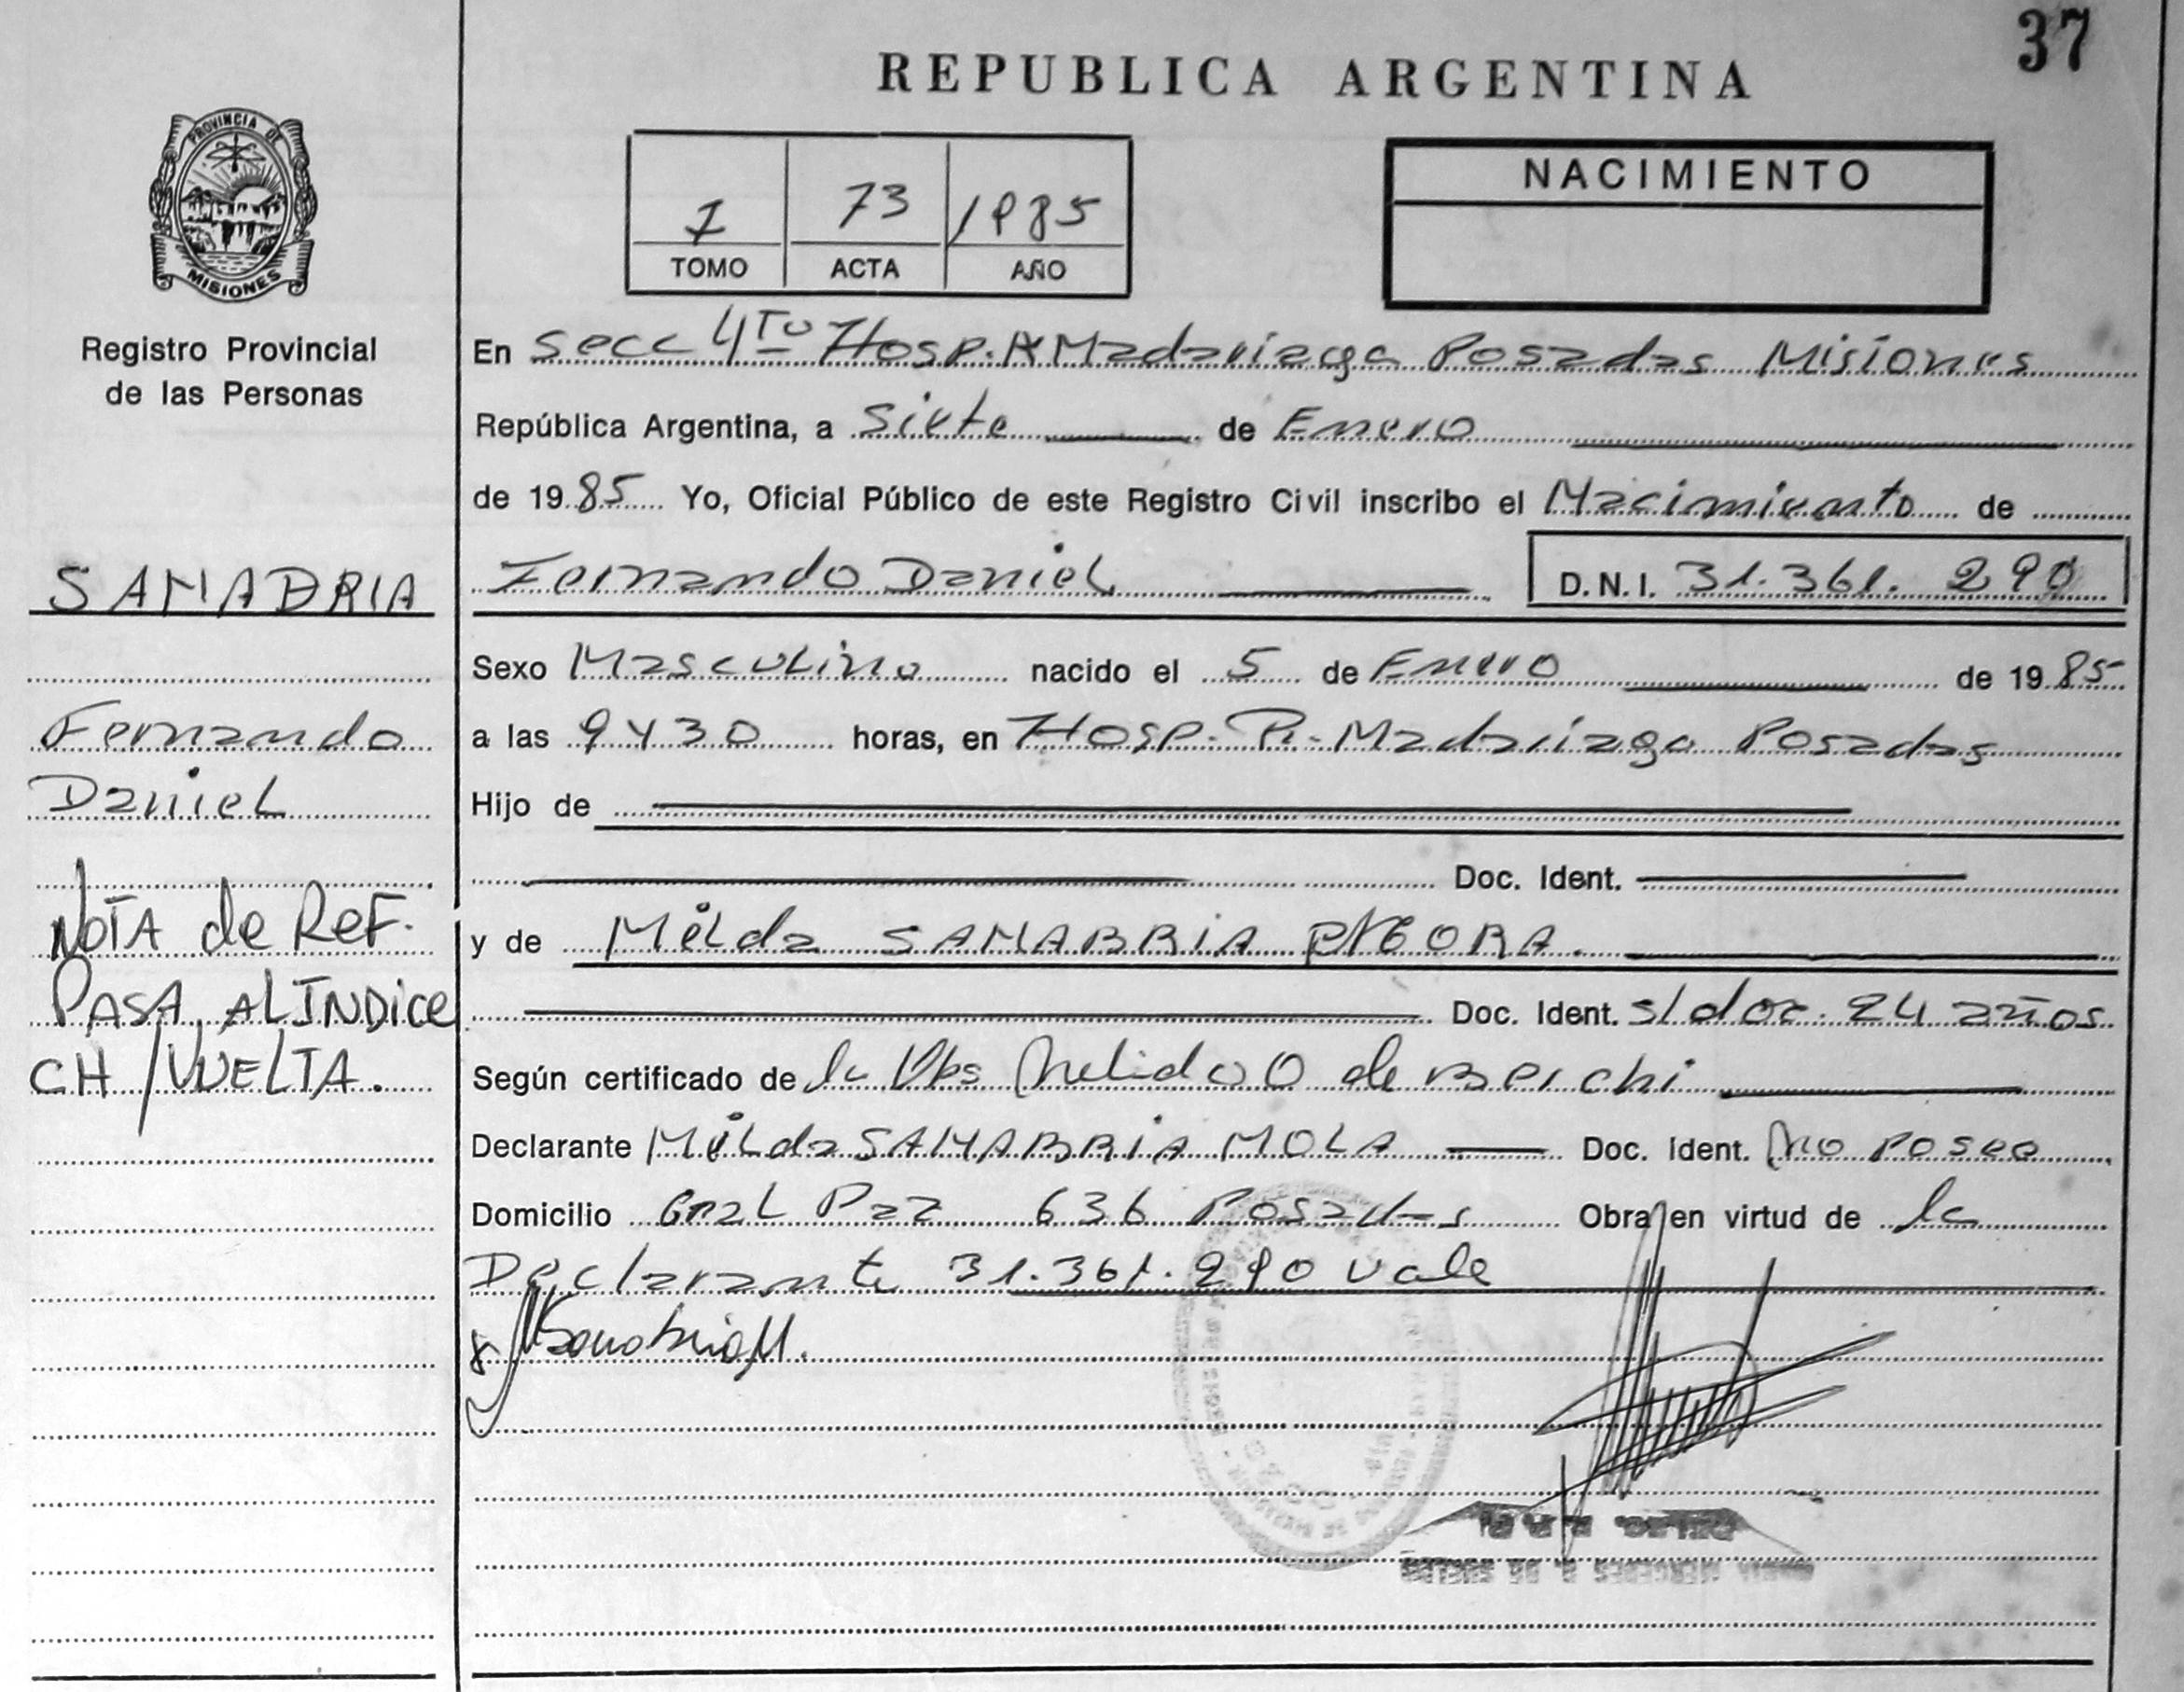 37
REPUBLICA ARGENTINA
PROVINCIA DE
MISIONES
Registro Provincial
de las Personas
1 73 1985
TOMO ACTA AÑO
NACIMIENTO
En secc 4to Hosp. R Madariaga Posadas Misiones
República Argentina, a Siete de Enero
de 1985 Yo, Oficial Público de este Registro Civil inscribo el Nacimiento de
SANABRIA
Fernando Daniel D.N.I. 31.361.290
Sexo Masculino nacido el 5 de Enero de 1985
Fernando
Daniel
a las 9 y 30 horas, en Hosp. R. Madariaga Posadas
Hijo de
Doc. Ident.
NOTA de REF.
PASA AL INDICE
CH/VUELTA.
y de Milda SANABRIA
Doc. Ident. s/doc. 24 años
Según certificado de la Obs Nelida O de Berchi
Declarante Milda SANABRIA MOLA Doc. Ident. No Posee
Domicilio Gral Paz 636 Posadas Obra en virtud de la
Declarante 31.361.290 vale
x Sanabria M.